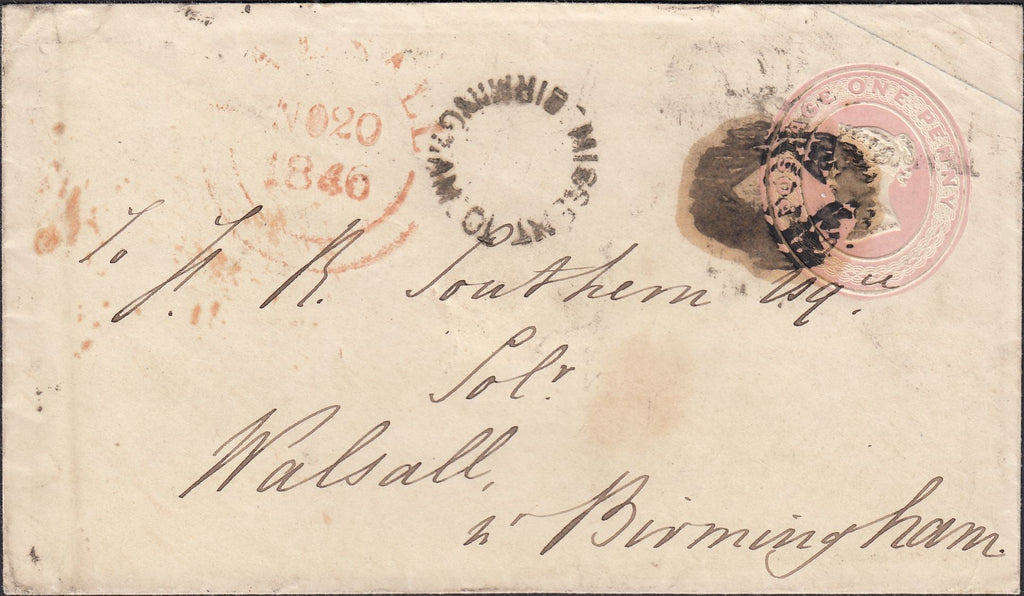 NO 20
1846
MISSENT TO BIRMINGHAM
POSTAGE ONE PENNY
To J. R. Southern Esqre
Solr
Walsall,
nr Birmingham.